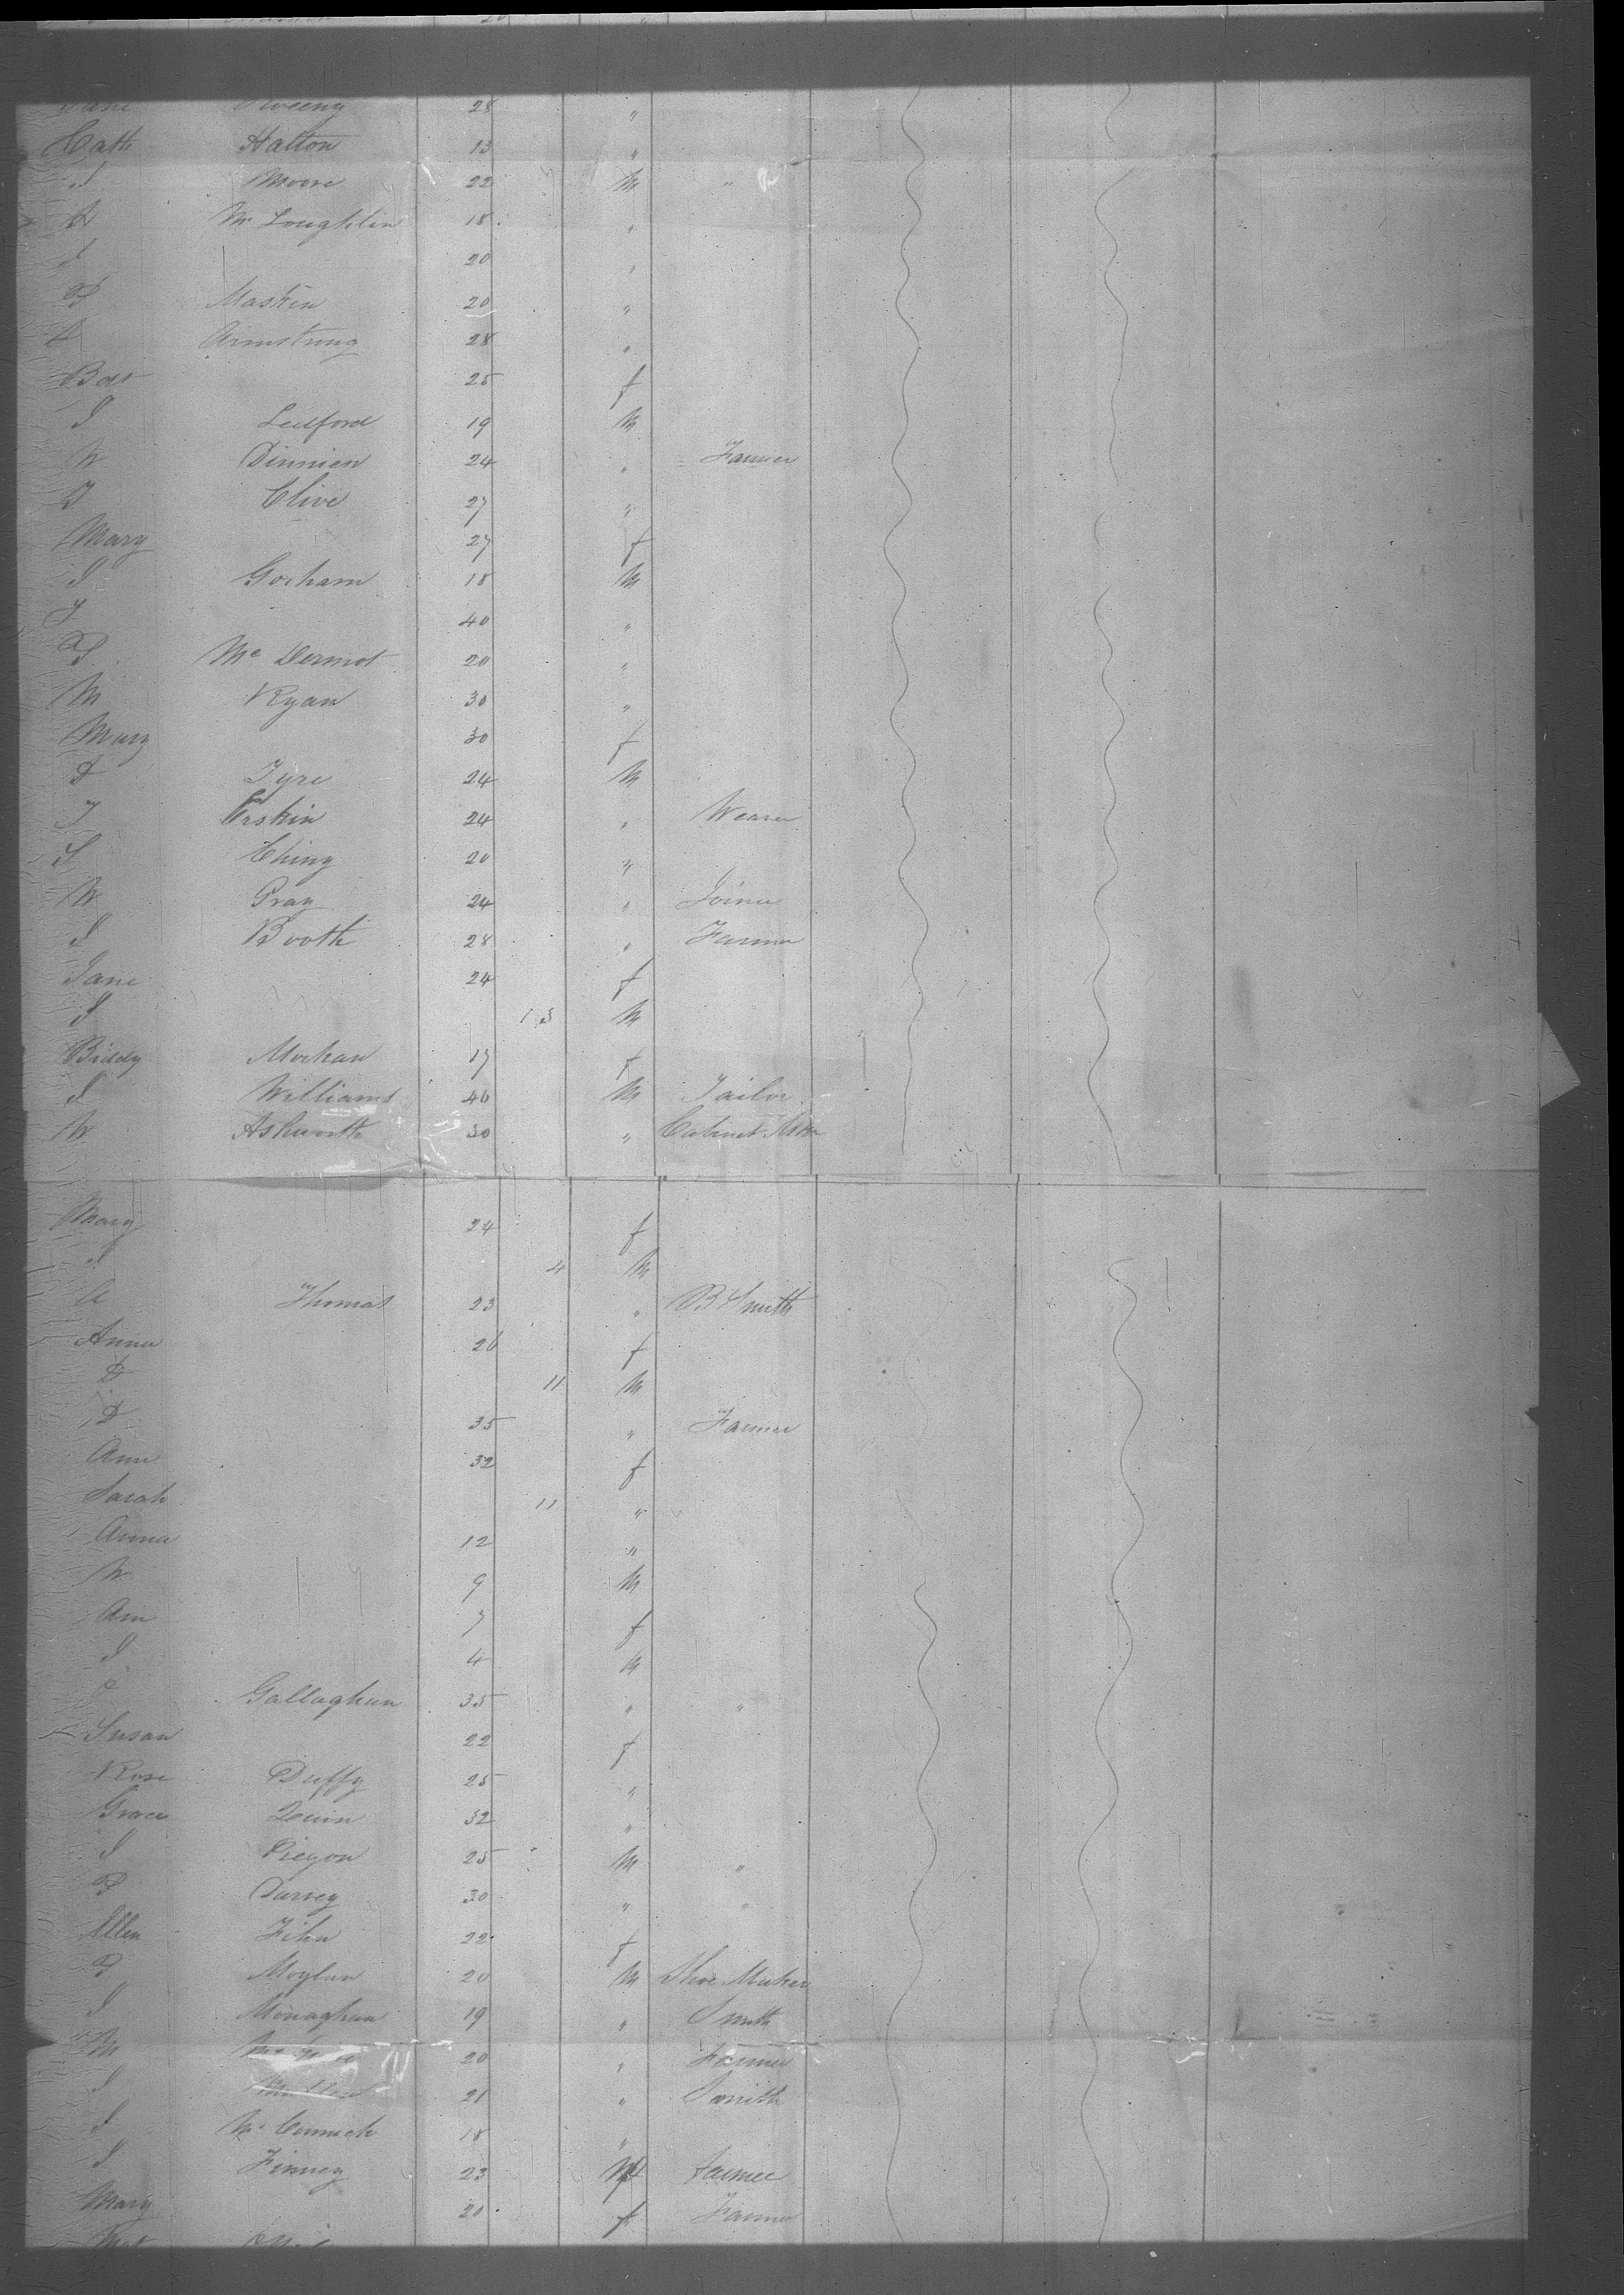 Jane Sweeny 28 "
Cath Hatton 13 "
J Moore 22 M "
A Mc Loughlin 18 "
J 20 "
P Maskin 20 "
A Armstrong 28 "
25 f
J Ledford 19 M
W Dinnien 24 " Farmer
J Clive 27 "
Mary 27 f
J Gorham 18 M
J 40 "
P Mc Dermot 20 "
M Ryan 30 "
Mary 30 f
D Tyre 24 M
J Erskin 24 " Weaver
S Ching 20 "
W Gray 24 " Joiner
J Booth 28 " Farmer
Jane 24 f
J 13 M
Biddy Morhan 17 f
J Williams 46 M Tailor
W Ashworth 30 " Cabinet
Mary 24 f
J 4 M
A Thomas 23 " B Smith
Anna 26 f
D 11 M
D 35 " Farmer
Ann 32 f
Sarah 11 "
Anna 12 "
W 9 M
Ann 7 f
J 4 M
Gallaghan 35 " "
Susan 22 f
Rose Duffy 25 "
Grace Quin 32 "
J 25 M "
P Durvey 30 " "
Ellen 22 f
P Moylan 20 M Shoe Maker
J Monaghan 19 " Smith
M 20 " Farmer
J 21 " Smith
J Mc Cormick 18 "
J Finney 23 M Farmer
Mary 20 f Farmer